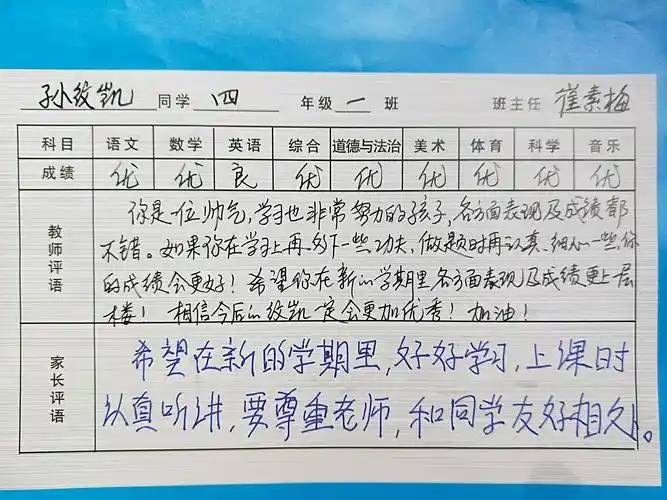 孙纹凯 同学 四 年级 一 班 班主任 崔素梅
科目 语文 数学 英语 综合 道德与法治 美术 体育 科学 音乐
成绩 优 优 良 优 优 优 优 优 优
教师评语
你是一位帅气,学习也非常努力的孩子,各方面表现及成绩都
不错。如果你在学习上再多下一些功夫,做题时再认真、细心一些,你
的成绩会更好!希望你在新的学期里各方面表现及成绩更上一层
楼!相信今后的纹凯一定会更加优秀!加油!
家长评语
希望在新的学期里,好好学习,上课时
认真听讲,要尊重老师,和同学友好相处。